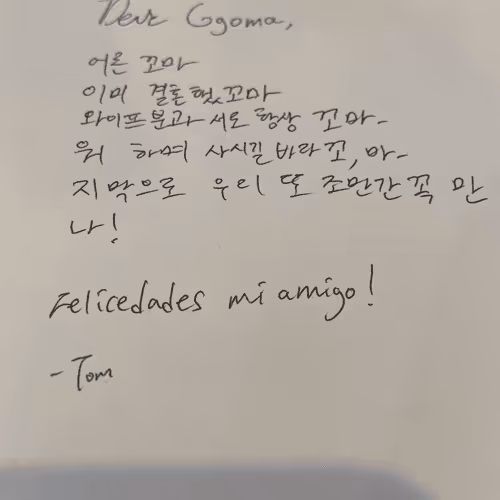 Dear Ggoma,
어른 꼬마
이미 결혼했꼬마
와이프분과 서로 항상 꼬마-
위 하며 사시길 바라꼬, 마-
지막으로 우리 또 조만간 꼭 만
나!
Felicedades mi amigo!
- Tom